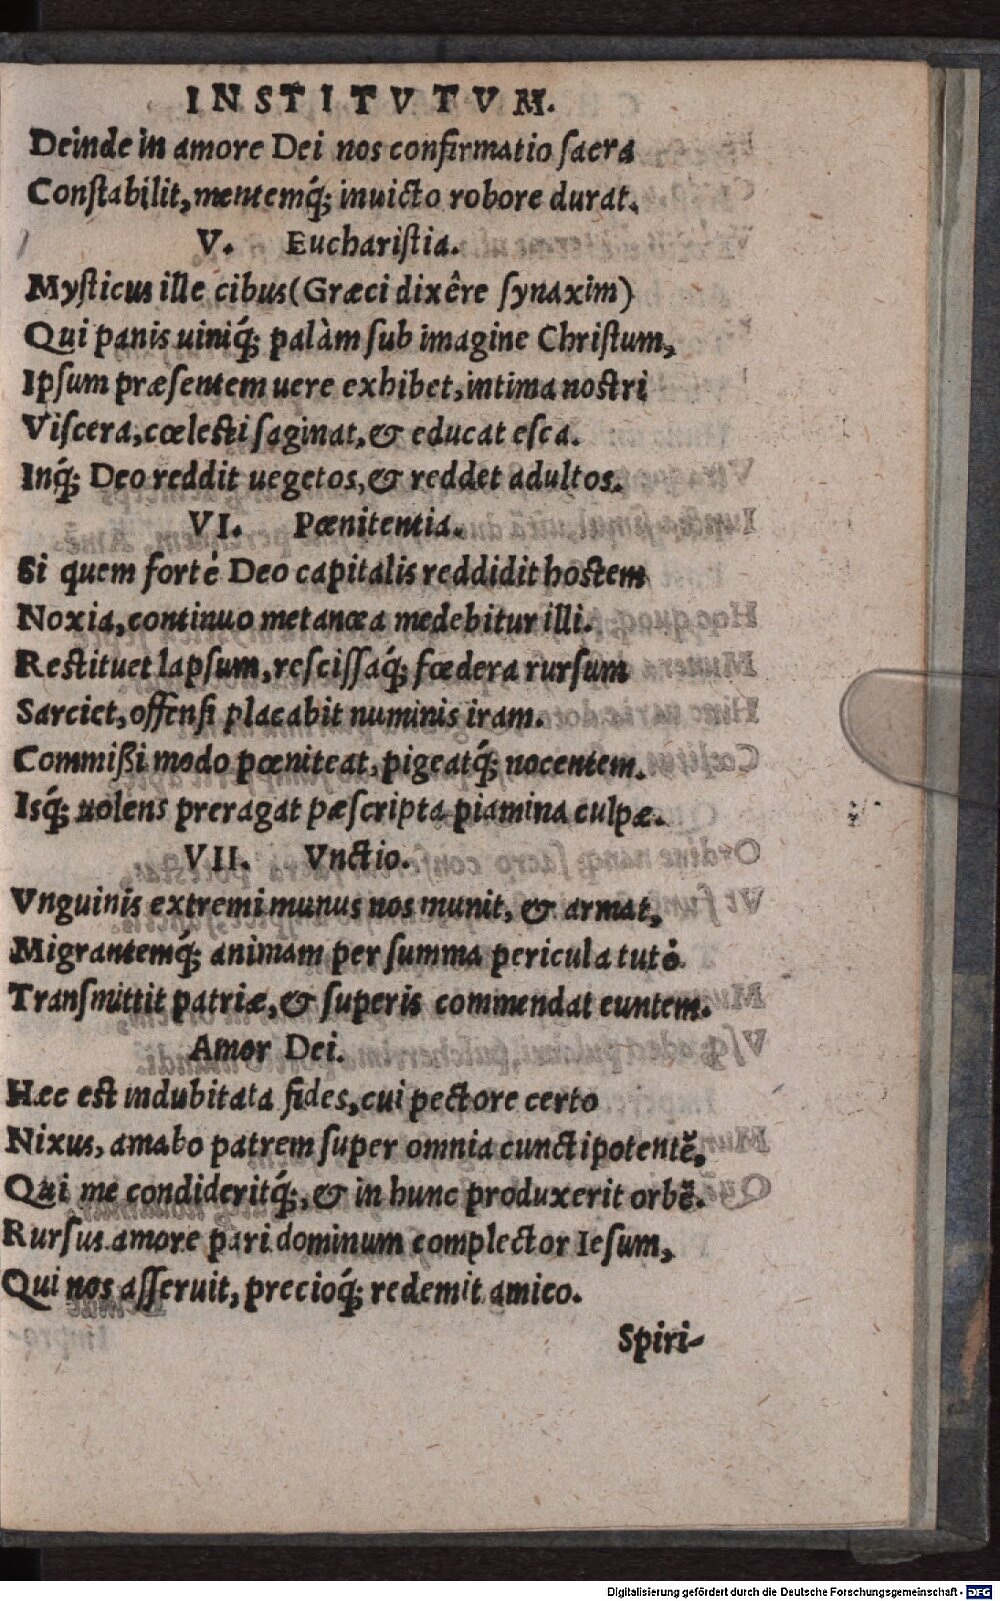 INSTITVTVM.
Deinde in amore Dei nos confirmatio ſacra
Conſtabilit, mentemq́; inuicto robore durat.
V. Euchariſtia.
Myſticus ille cibus (Græci dixêre ſynaxim)
Qui panis uiniq́; palàm ſub imagine Chriſtum,
Ipſum præſentem uere exhibet, intima noſtri
Viſcera, cœleſti ſaginat, & educat eſca.
Inq́; Deo reddit uegetos, & reddet adultos.
VI. Pœnitentia.
Si quem fortè Deo capitalis reddidit hoſtem
Noxia, continuo metanœa medebitur illi.
Reſtituet lapſum, reſciſſaq́; fœdera rurſum
Sarciet, offenſi placabit numinis iram.
Commißi modo pœniteat, pigeatq́; nocentem.
Isq́; uolens preragat pæſcripta piamina culpæ.
VII. Vnctio.
Vnguinis extremi munus nos munit, & armat,
Migrantemq́; animam per ſumma pericula tutò
Tranſmittit patriæ, & ſuperis commendat euntem.
Amor Dei.
Hæc eſt indubitata fides, cui pectore certo
Nixus, amabo patrem ſuper omnia cunctipotentẽ,
Qui me condideritq́;, & in hunc produxerit orbẽ.
Rurſus amore pari dominum complector Ieſum,
Qui nos aſſeruit, precioq́; redemit amico.
Spiri-
Digitalisierung gefördert durch die Deutsche Forschungsgemeinschaft - DFG